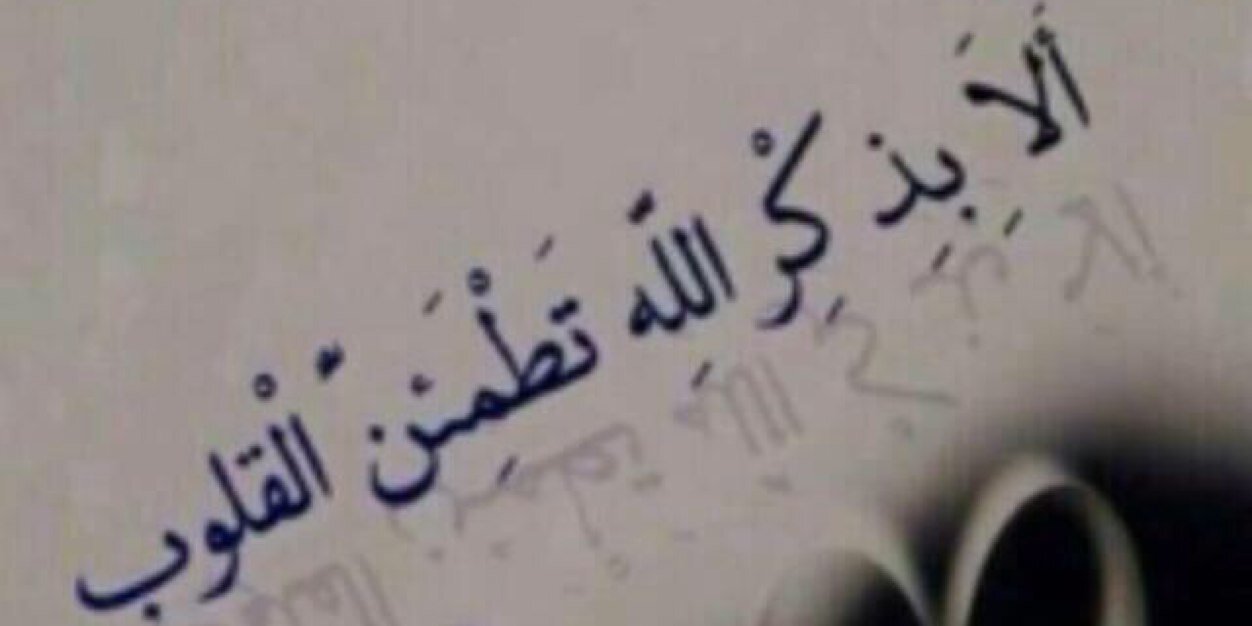 أَلاَ بِذِكْرِ اللَّهِ تَطْمَئِنُّ الْقُلُوب